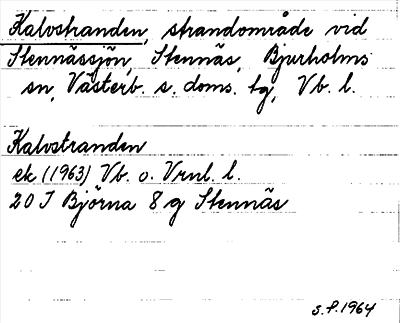 Kalvstranden, strandområde vid
Stennässjön, Stennäs, Bjurholms
sn, Västerb. s. doms. tg, Vb. l.
Kalvstranden
ek (1963) Vb. o. Vrnl. l.
20 J Björna 8 g Stennäs
s.f. 1964